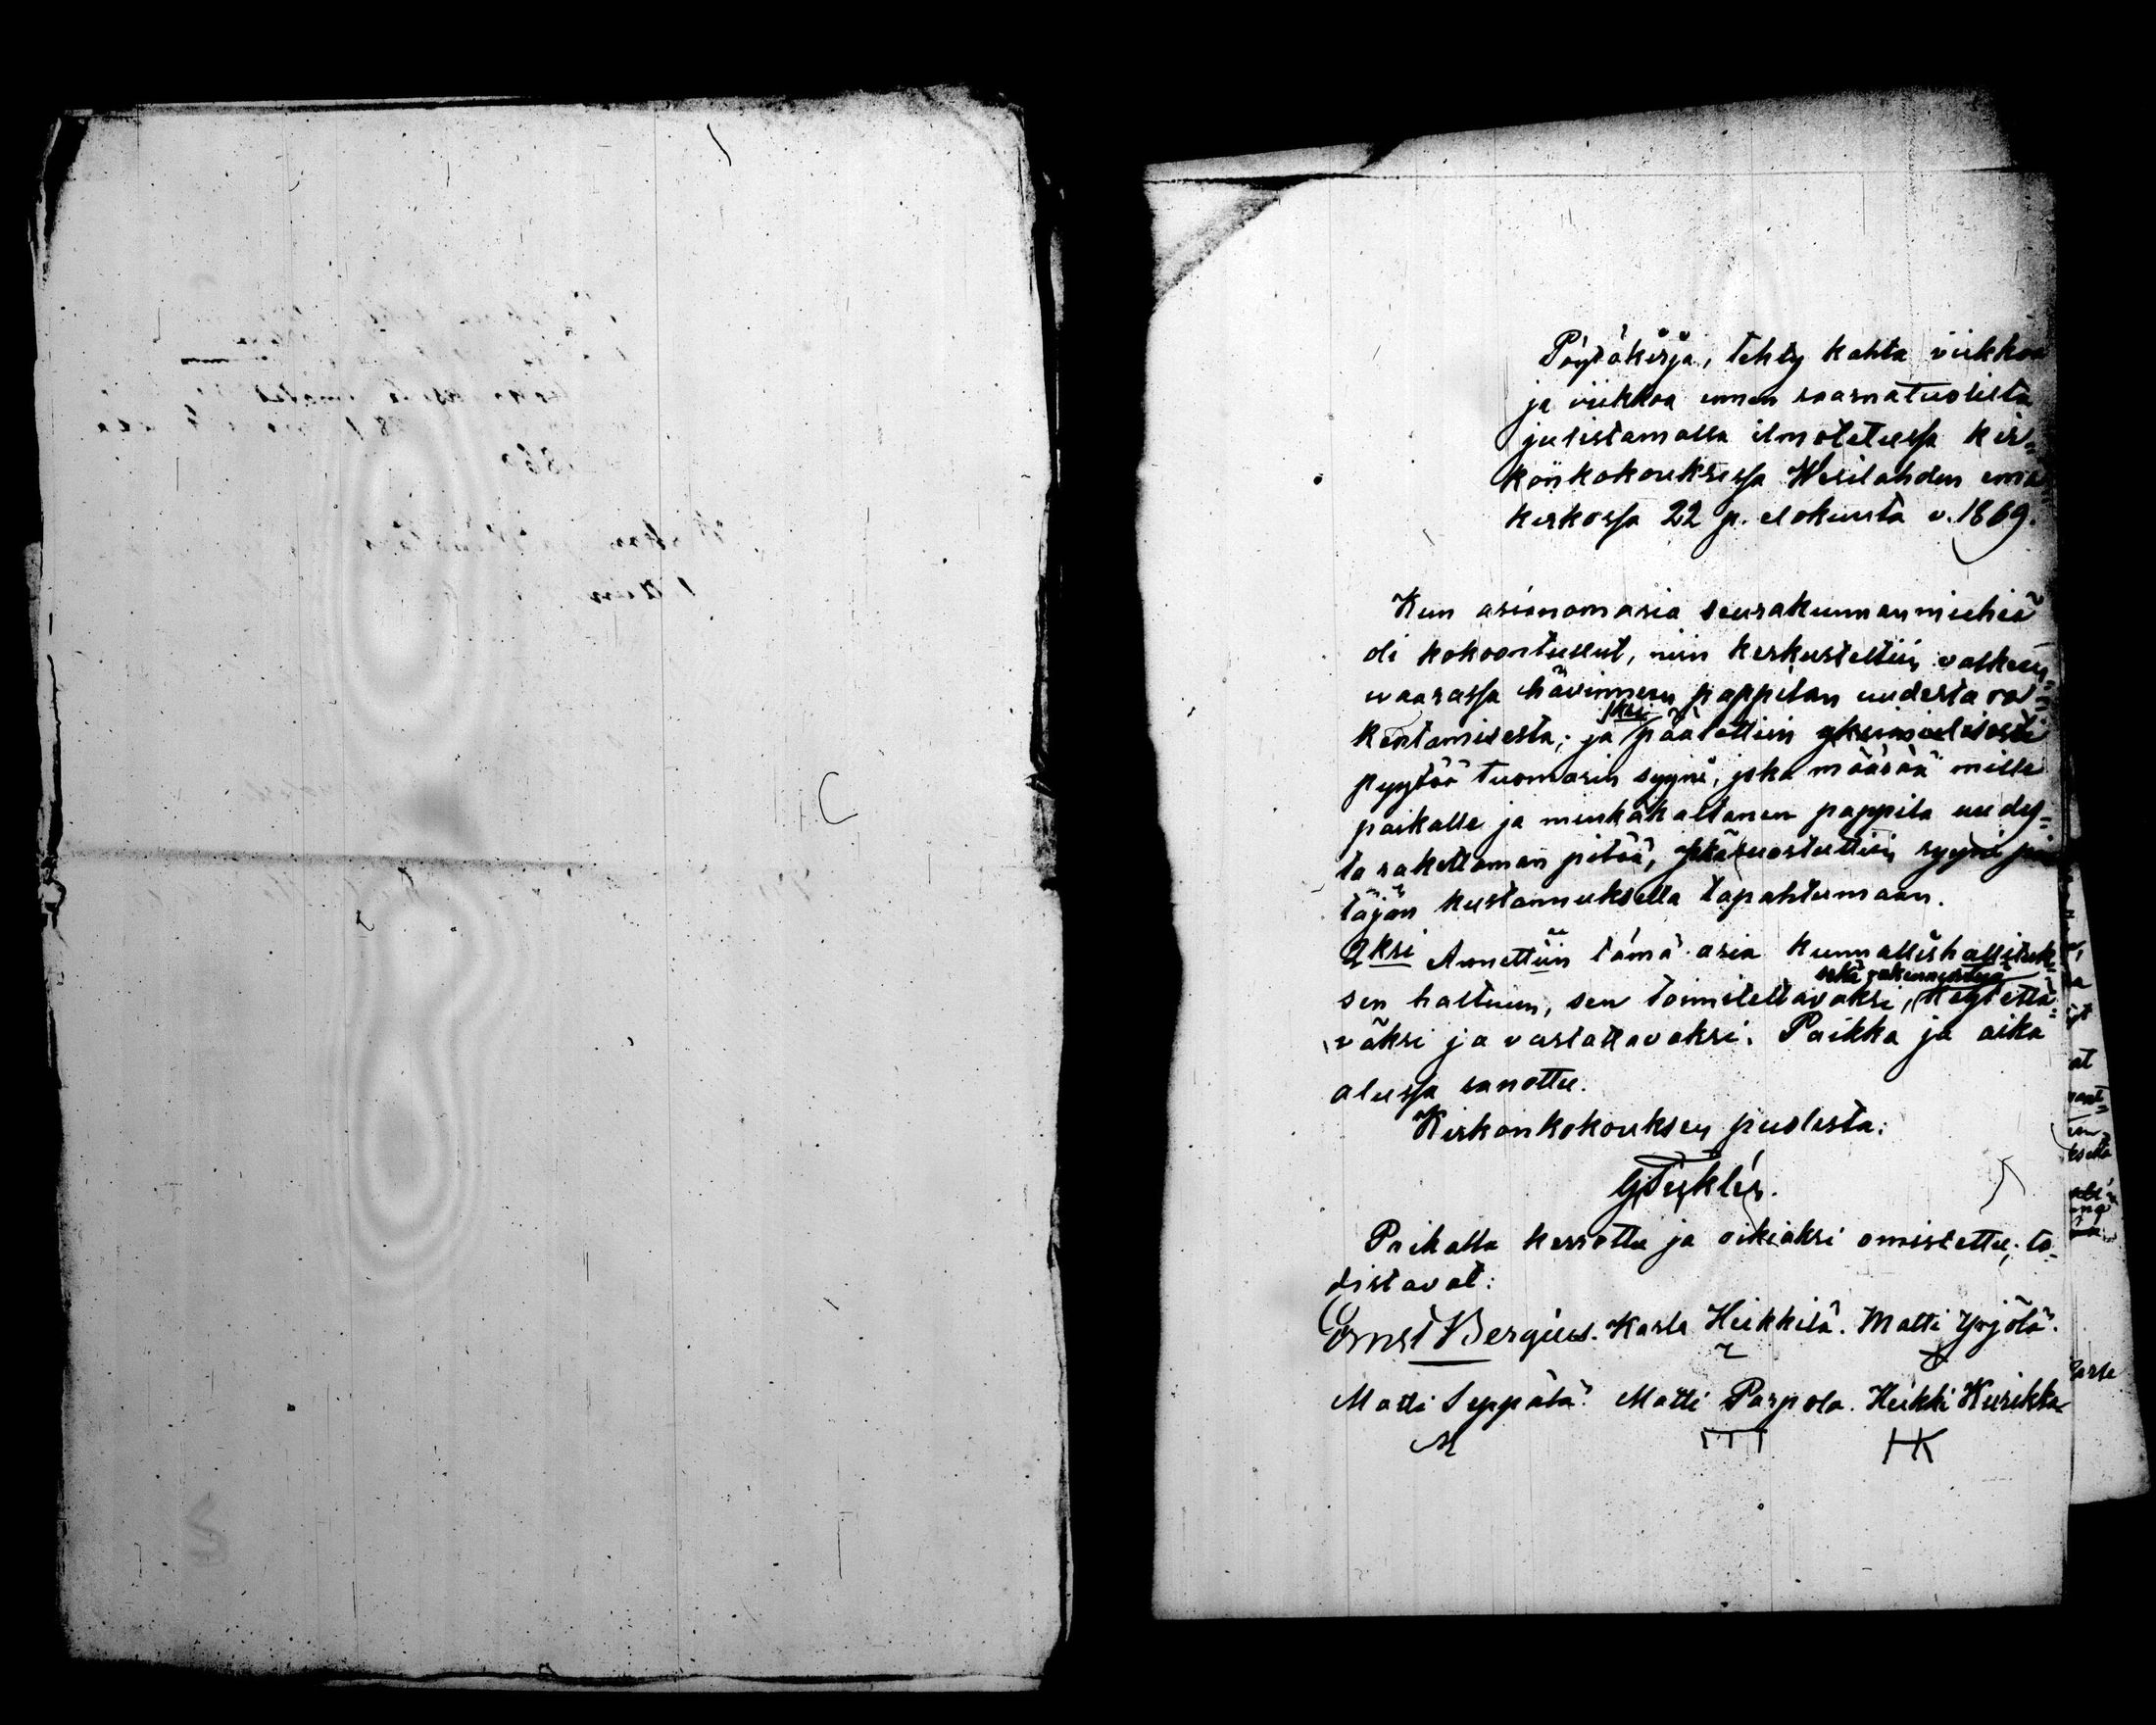 Pöytäkirja, tehty kahta viikkoa
ja viikkoa ennen saarnatuolista
julistamalla ilmotetussa kir-
konkokouksessa Wesilahden emä
kirkossa 22 p. elokuuta v. 1869.
Kun asianomasia seurakunnanmiehiä
oli kokoontullut, niin keskusteltiin valkean-
waarassa hävinneen pappilan uudesta ra-
kentamisesta; ja 1ksi päätettiin yksimielisesti
pyytää tuomarin syyni, joka määrää mille
paikalle ja minkäkaltanen pappila uudes-
ta rakettaman pitää, suostuttiin syyni pi
täjän kustannuksella tapahtumaan.
2ksi Annettiin tämä asia kunnallishallituk-
sen haltuun, sen toimitettavaksi, sekä rakennustyö käytettä-
väksi ja vastattavaksi. Paikka ja aika
alussa sanottu.
Kirkonkokouksen puolesta:
G Tuklén.
Paikalla kerrottu ja oikiaksi omistettu; to-
distavat:
Ernst Bergius. Karle Heikkilä. Matti Yrjölä.
Matti Seppälä. Matti Parpola. Heikki Kurikka
HK